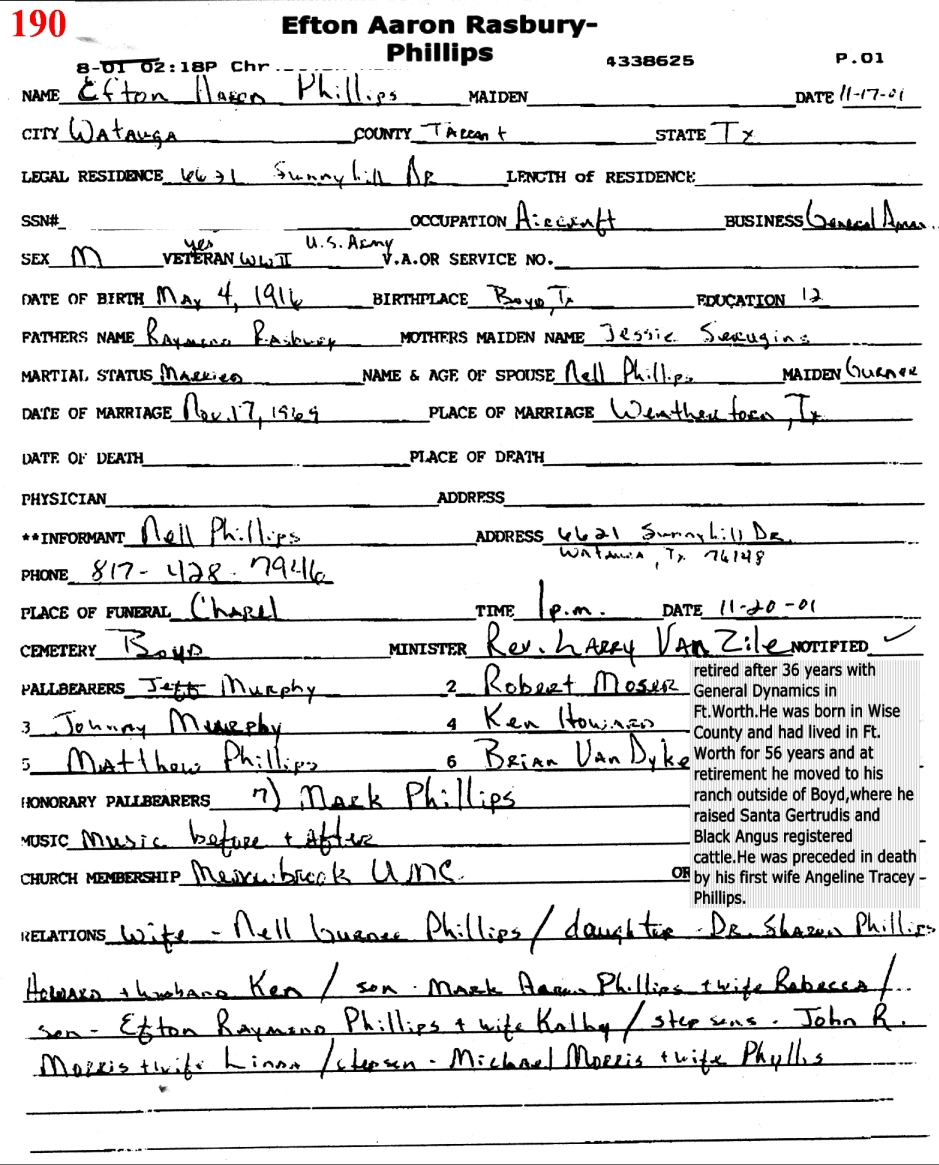 190
Efton Aaron Rasbury-
Phillips
8-01 02:18P Chr 4338625 P.01
NAME Efton Aaron Phillips MAIDEN DATE 11-17-01
CITY Watauga COUNTY Tarrant STATE Tx
LEGAL RESIDENCE 6621 Sunnyhill Dr LENGTH of RESIDENCE
SSN# OCCUPATION Aircraft BUSINESS General
yes U.S. Army
SEX M VETERAN WW II V.A.OR SERVICE NO.
DATE OF BIRTH May 4, 1916 BIRTHPLACE Boyd, Tx EDUCATION 12
FATHERS NAME Raymond Rasbury MOTHERS MAIDEN NAME Jessie Scrugins
MARTIAL STATUS Married NAME & AGE OF SPOUSE Nell Phillips MAIDEN Gurnee
DATE OF MARRIAGE Nov. 17, 1969 PLACE OF MARRIAGE Weatherford, Tx
DATE OF DEATH PLACE OF DEATH
PHYSICIAN ADDRESS
**INFORMANT Nell Phillips ADDRESS 6621 Sunnyhill Dr.
Watauga, Tx 76148
PHONE 817-428-7946
PLACE OF FUNERAL Chapel TIME 1 p.m. DATE 11-20-01
CEMETERY Boyd MINISTER Rev. Larry Van Zile NOTIFIED ✓
PALLBEARERS Jeff Murphy 2 Robert Moser
3 Johnny Murphy 4 Ken Howard
5 Matthew Phillips 6 Brian Van Dyke
HONORARY PALLBEARERS 7) Mark Phillips
MUSIC Music before + After
CHURCH MEMBERSHIP UMC. OR
retired after 36 years with
General Dynamics in
Ft.Worth.He was born in Wise
County and had lived in Ft.
Worth for 56 years and at
retirement he moved to his
ranch outside of Boyd,where he
raised Santa Gertrudis and
Black Angus registered
cattle.He was preceded in death
by his first wife Angeline Tracey
Phillips.
RELATIONS Wife - Nell Gurnee Phillips / daughter - Dr. Sharon Phillips
Howard + husband Ken / son - Mark Aaron Phillips + wife Rebecca /
son - Efton Raymond Phillips + wife Kathy / step sons - John R.
Morris + wife Linda / stepson - Michael Morris + wife Phyllis